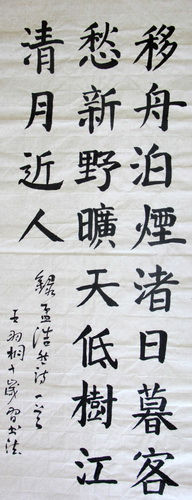 移舟泊煙渚日暮客
愁新野曠天低樹江
清月近人
錄孟浩然詩一首
王羽桐十歲習書法